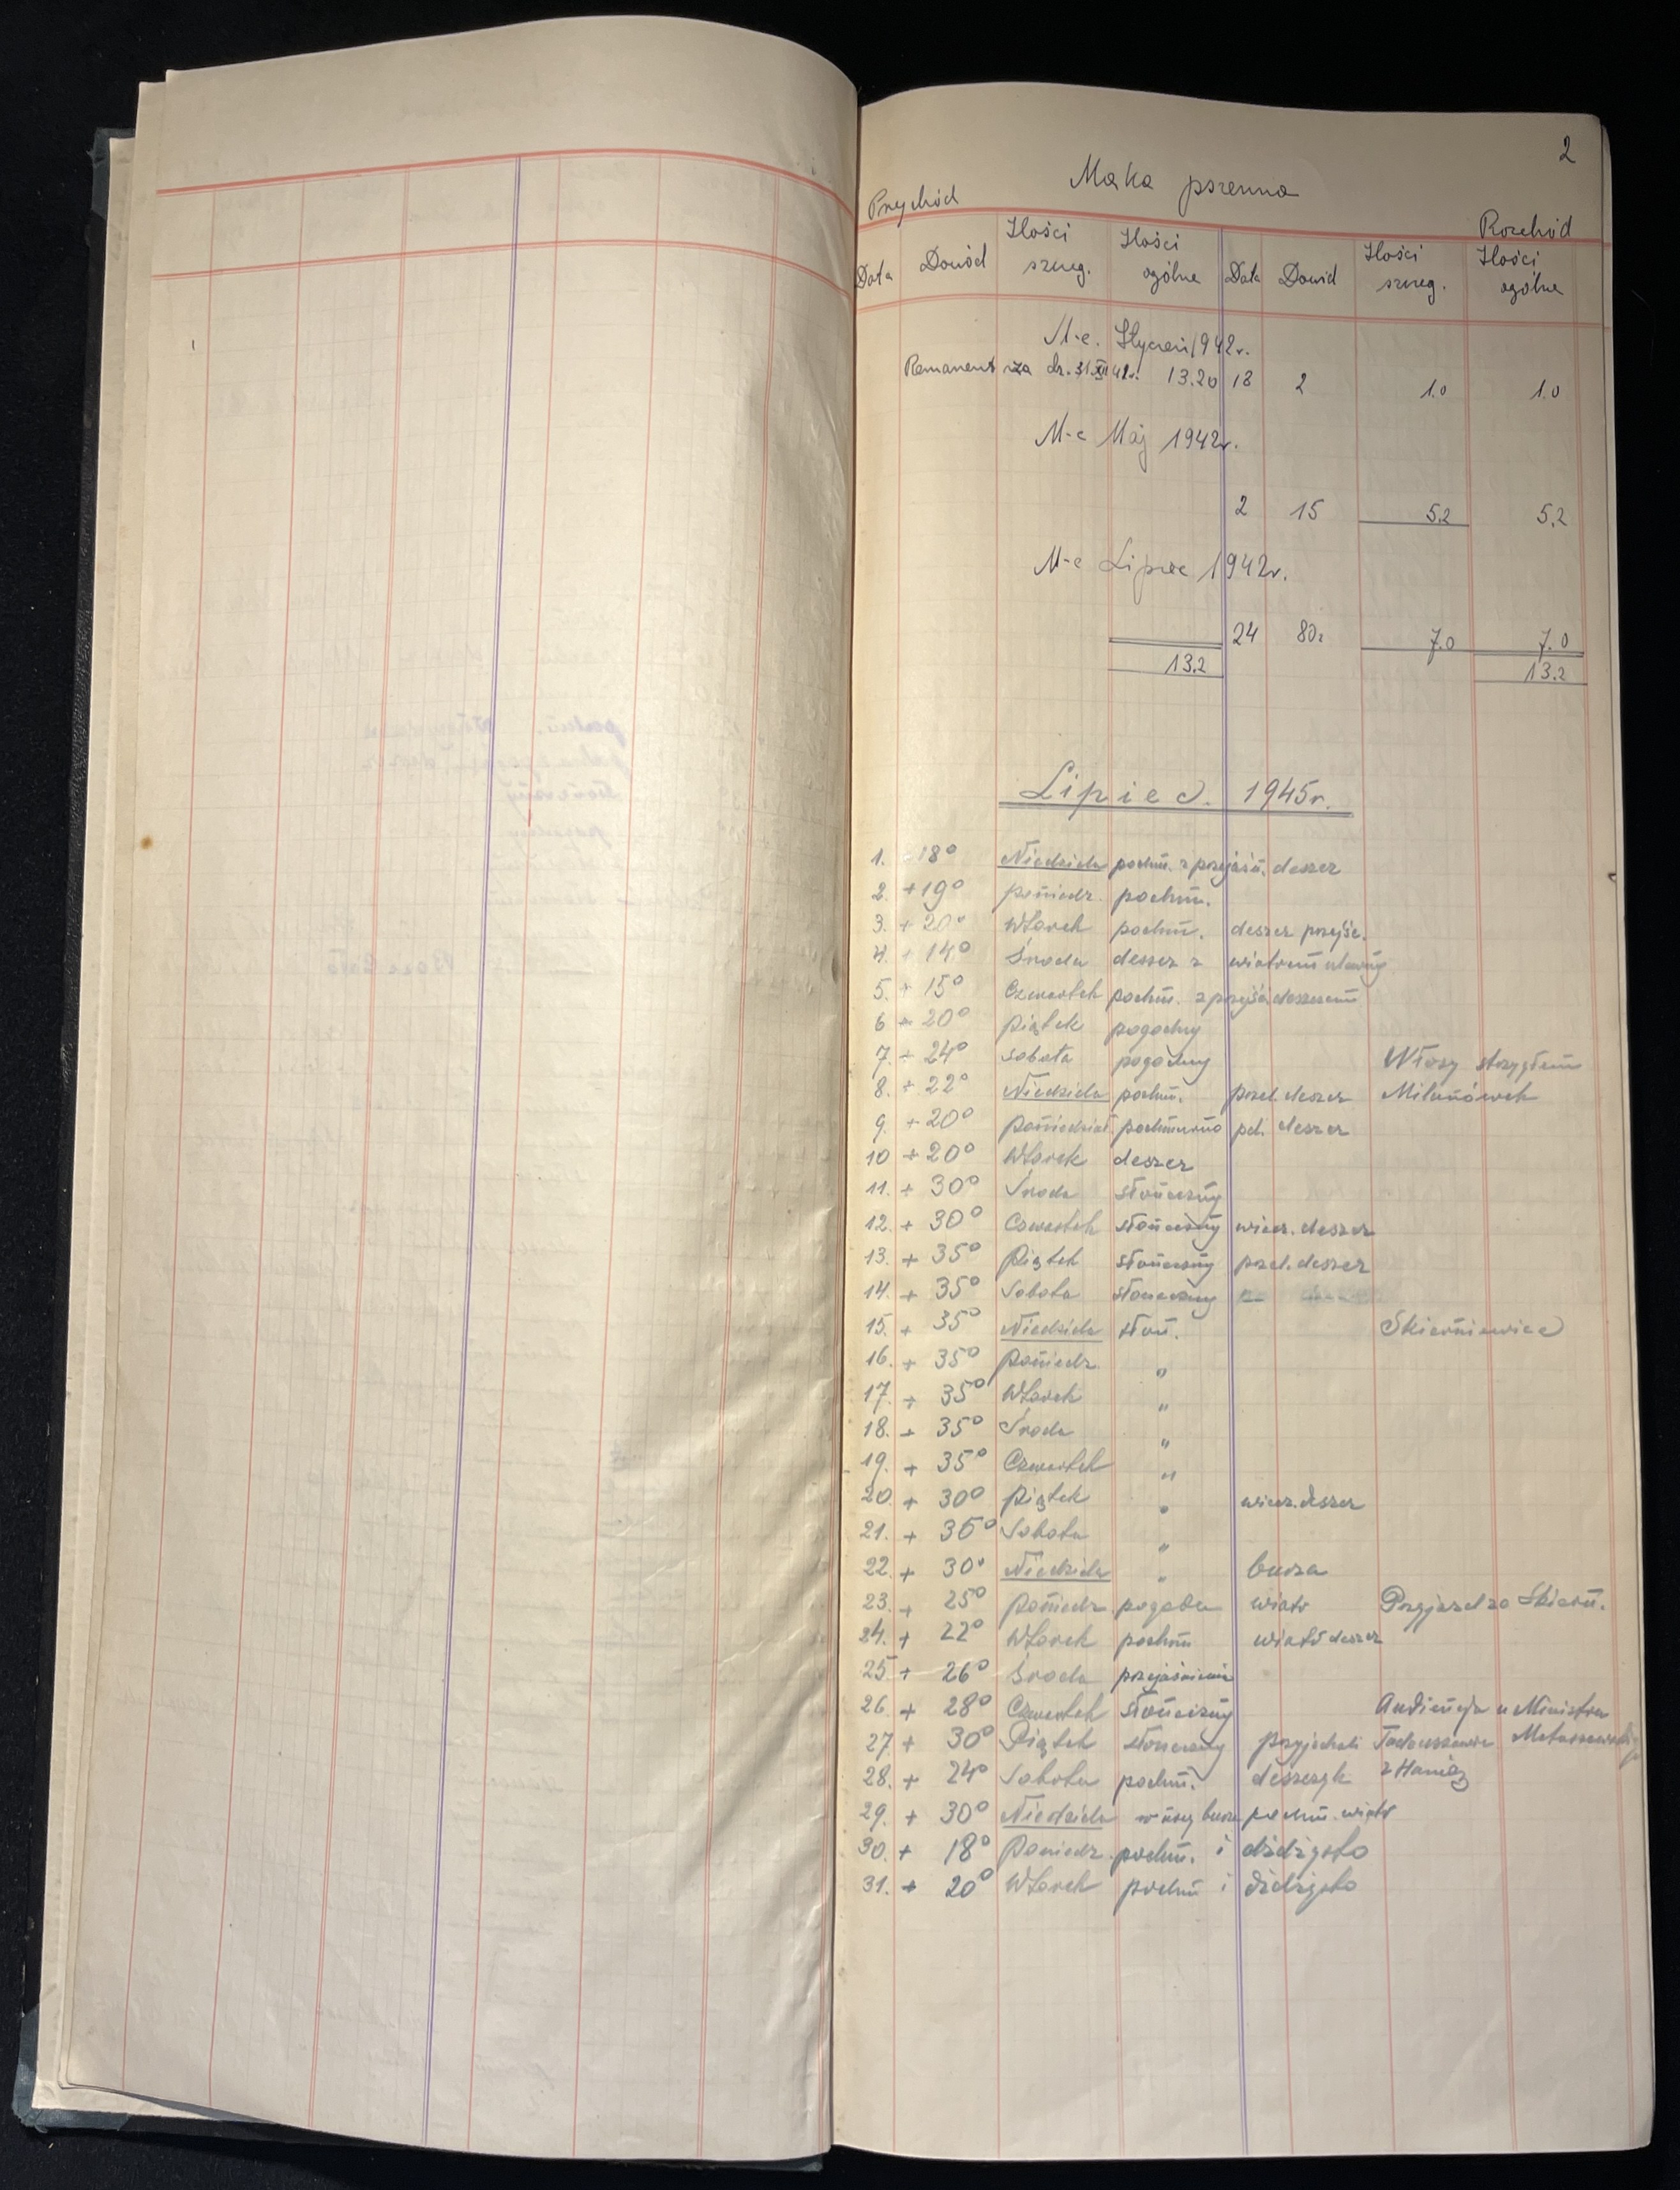 2
Mąka pszenna
Przychód
Rozchód
Data Dowód Ilości szczeg. Ilości ogólne Data Dowód Ilości szczeg. Ilości ogólne
M-c. Styczeń 1942r.
Remanent za dz. 31.XII 41r. 13.20 18 2 1.0 1.0
M-c Maj 1942r.
2 15 5.2 5.2
M-c Lipiec 1942r.
24 80 7.0 7.0
13.2 13.2
Lipiec. 1945r.
1. +18° Niedziela pochm. z przejaśn. deszcz
2. +19° poniedz. pochm.
3. + 20° Wtorek pochm. deszcz przejśc.
4. + 14° Środa deszcz z wiatrem
5. + 15° Czwartek pochm. z przejść deszczem
6 + 20° piątek pogodny
7. + 24° sobota pogodny Włosy strzygłem
8. + 22° Niedziela pochm. przel. deszcz Milanówek
9. +20° poniedział. pochmurno pd. deszcz
10 +20° Wtorek deszcz
11. + 30° Środa słoneczny
12. + 30° Czwartek słoneczny wiecz. deszcz
13. + 35° Piątek słoneczny przel. deszcz
14. + 35° Sobota słoneczny
15. + 35° Niedziela słon. Skierniewice
16. + 35° poniedz. "
17. + 35° Wtorek "
18. + 35° Środa "
19. + 35° Czwartek "
20. + 30° piątek " wiecz. deszcz
21. + 35° Sobota "
22. + 30° Niedziela " burza
23. + 25° poniedz. pogoda wiatr Przyjazd ze Skiern.
24. + 22° Wtorek pochm wiatr deszcz
25 + 26° Środa przejaśnienie
26. + 28° Czwartek słoneczny Audiencja u Ministra
27. + 30° Piątek słoneczny przyjechali Tadeuszowie
28. + 24° Sobota pochm. deszczyk z Hanią
29. + 30° Niedziela w nocy burza pochm. wiatr
30. + 18° Poniedz. pochm. i dżdżysto
31. + 20° Wtorek pochm i dżdżysto